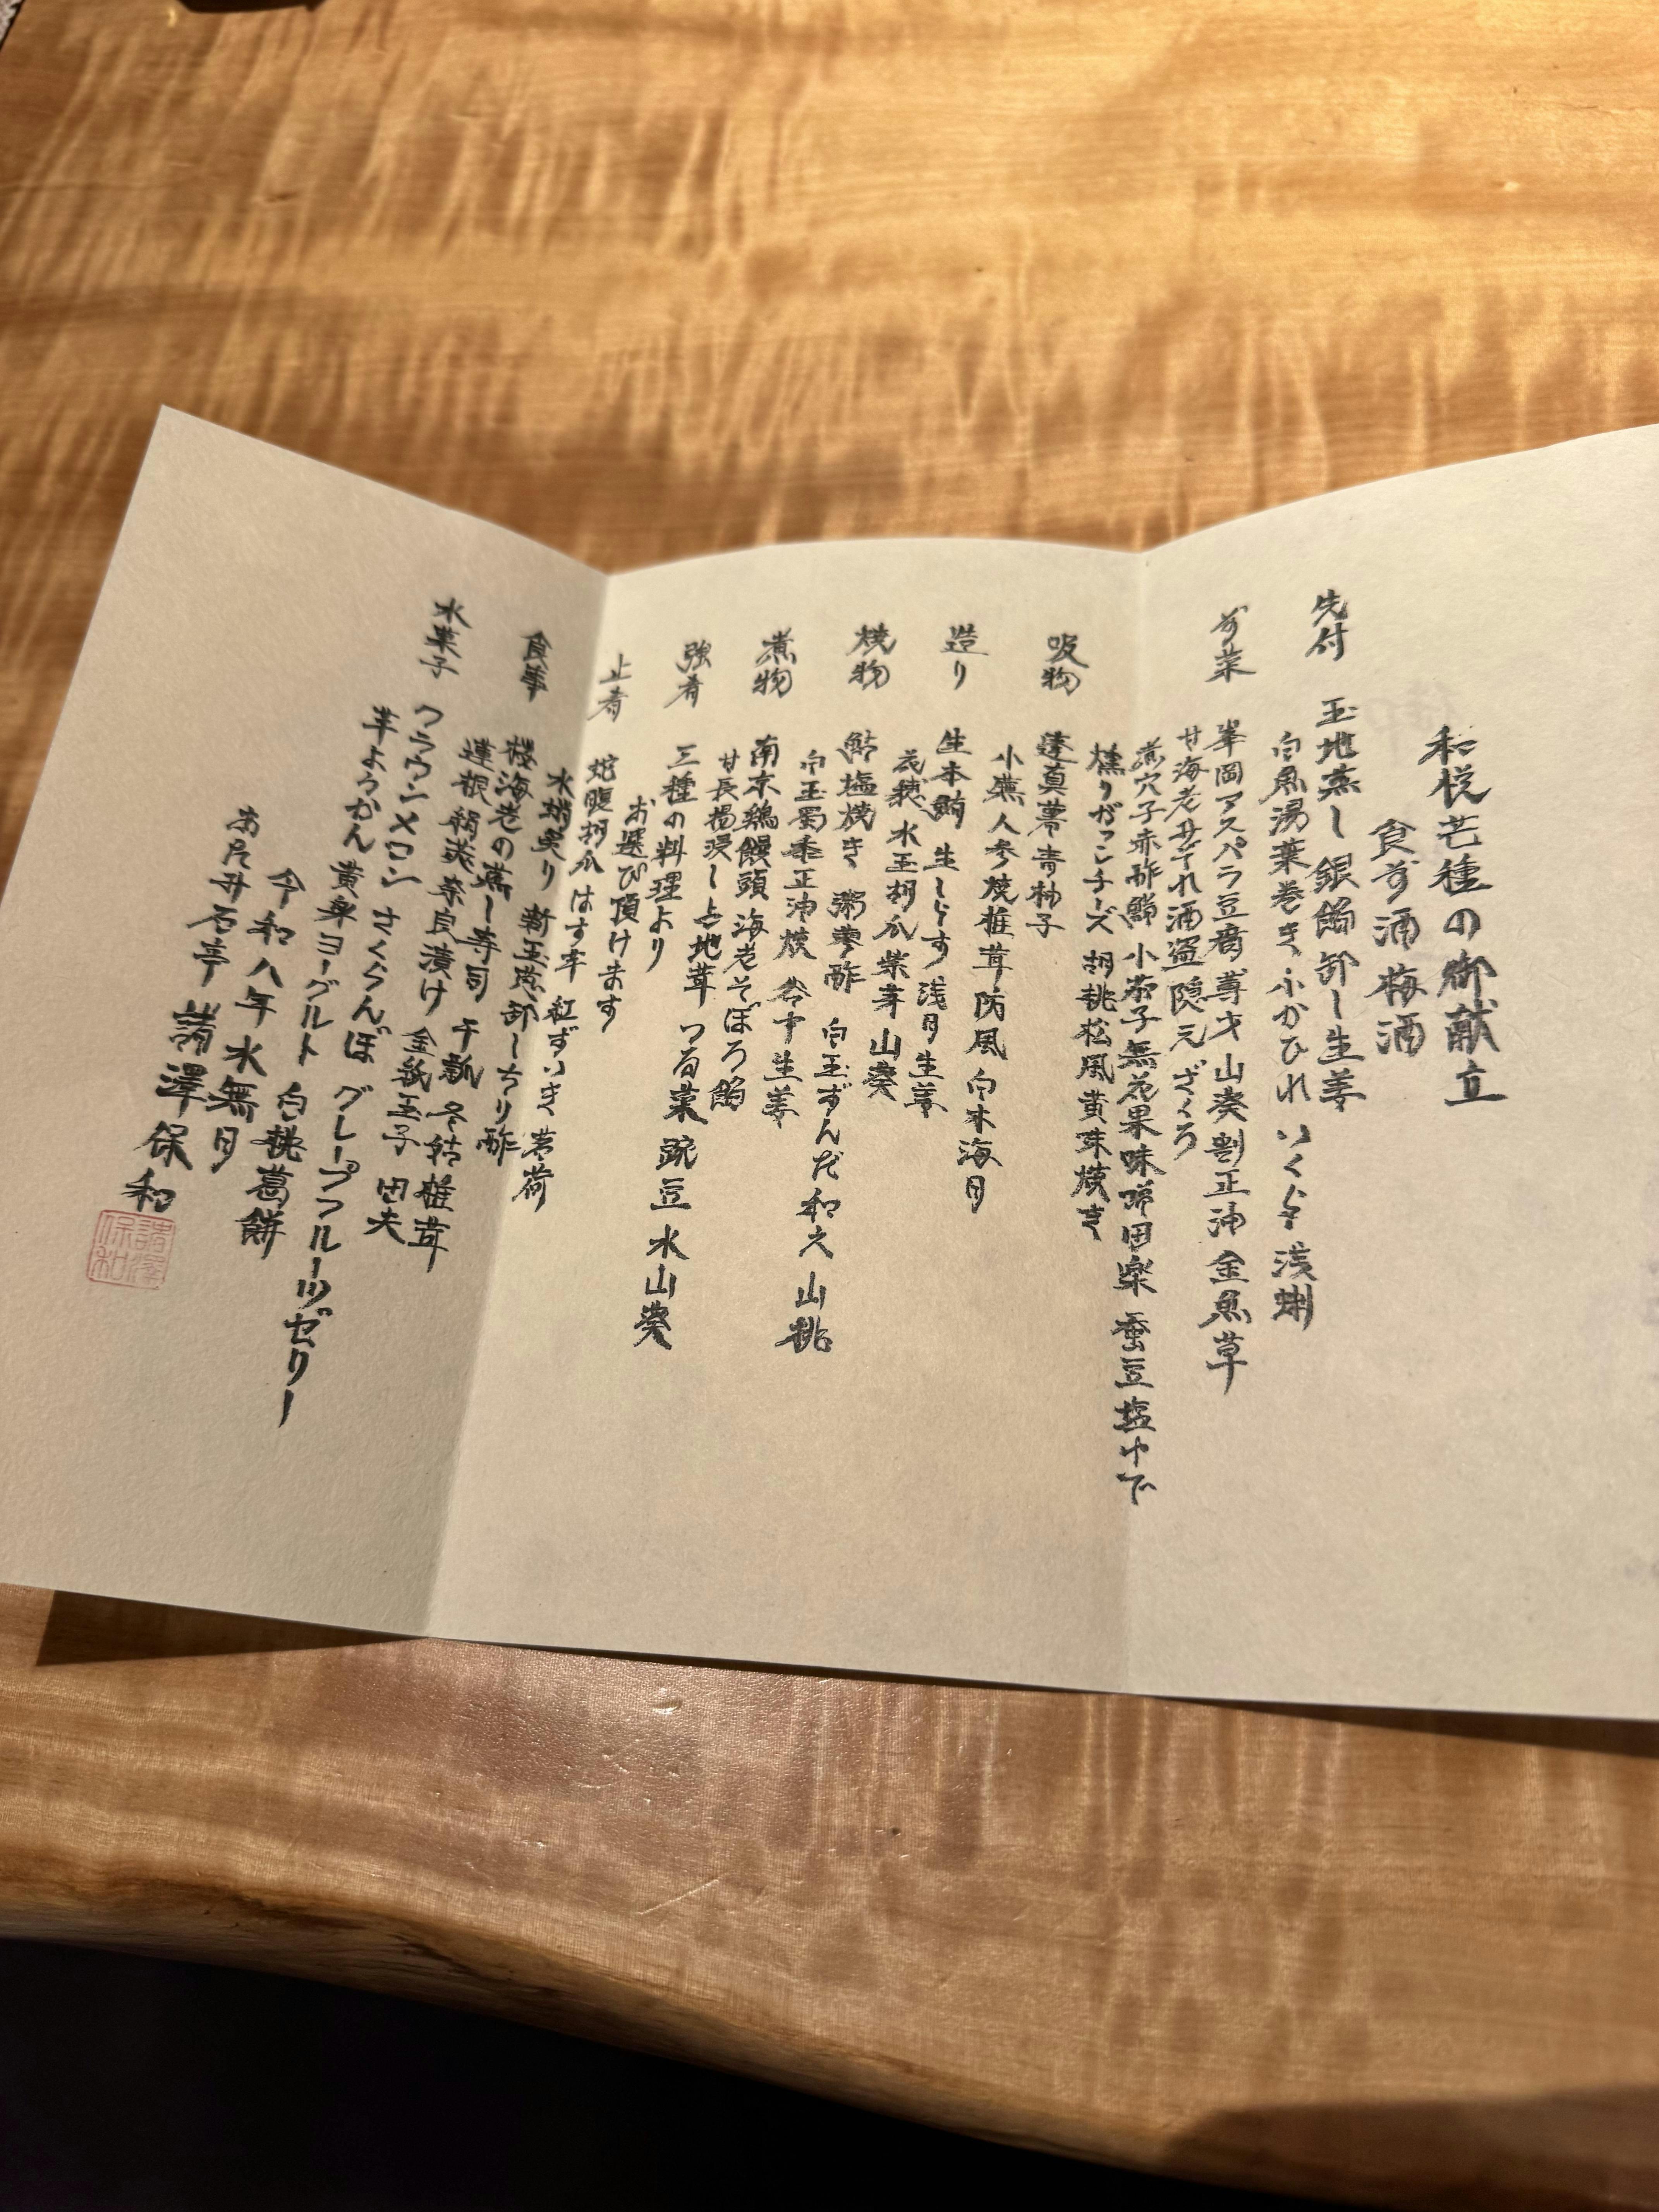 和悦芒種の御献立
食前酒 梅酒
先付 玉地蒸し 銀餡卸し生姜
白魚湯葉巻き ふかひれ いくら 浅
前菜 峯岡アスパラ豆腐 蓴才 山葵割正油 金魚草
甘海老 酒盗 隠元ざくろ
煮穴子赤酢 小茄子無花果味噌田楽 蚕豆塩ゆで
燻りがっこチーズ 胡桃松風黄味焼き
吸物 蓬真薯 青柚子
小蕪 人参 焼椎茸 防風 白木海月
造り 生本鮪 生しらす 浅月 生姜
花穂 水玉胡瓜 紫芽 山葵
焼物 鮎塩焼き 粥蓼酢 白玉ずんだ和え 山桃
白玉蜀黍正油焼 谷中生姜
煮物 南京鶏饅頭 海老そぼろ餡
甘長揚浸し 占地茸 つる菜 豌豆 水山葵
強肴 三種の料理より
お選び頂けます
止肴 蛇腹胡瓜 はす芋 紅ずいき 茗荷
水蛸 新玉葱卸しちり酢
食事 桜海老の蒸し寿司 干瓢 冬菇椎茸
蓮根 絹莢 奈良漬け 金紙玉子 田夫
水菓子 クラウンメロン さくらんぼ グレープフルーツゼリー
羊ようかん 黄身ヨーグルト 白桃葛餅
令和八年水無月
石亭 諸澤保和
諸澤保和